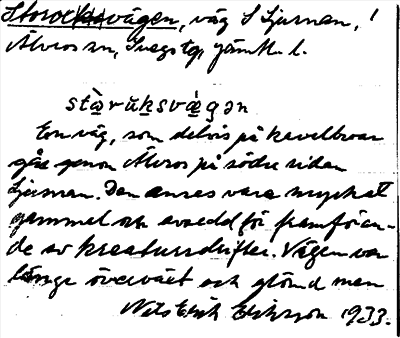 Storocksvägen, väg S Ljusnan, !
Älvros sn, Svegs tg, Jämtl. l.
stὰrŭksvὰgən
En väg, som delvis på kavelbroar
går genom Älvros på södra sidan
Ljusnan. Den anses vara mycket
gammal och avsedd för framföran-
de av kreatursdrifter. Vägen var
länge övervuxit och glömd men
Nils Erik Eriksson 1933.